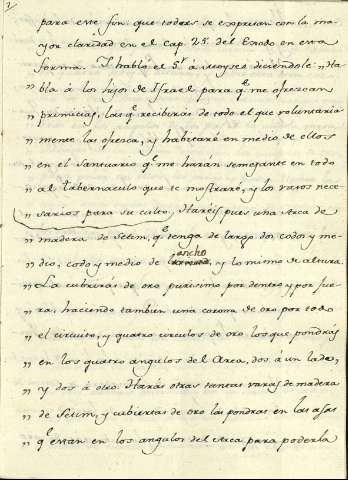 2
para este fin: que todos se expresan con la ma-
yor claridad en el cap. 25. del Exodo en esta
forma. Y habló el Sr. á Moyses diciendole „ Ha-
„ bla á los hijos de Israel para qe. me ofrezcan
„ primicias, las qe. recibirás de todo el que voluntaria-
„ mente las ofrezca, y habitaré en medio de ellos
„ en el Santuario qe. me harán semejante en todo
„ al tabernaculo que te mostraré, y los vasos nece-
„ sarios para su culto. Hareis pues una Arca de
„ madera de Setim, qe. tenga de largo dos codos y me-
„ dio, codo y medio de ancho, y lo mismo de altura.
„ La cubriras de oro purisimo por dentro y por fue-
„ ra, haciendo tambien una corona de oro por todo
„ el circuito, y quatro circulos de oro los que pondrás
„ en los quatro angulos del Arca, dos á un lado,
„ y dos á otro. Harás otras tantas varas de madera
„ de Setim, y cubiertas de oro las pondras en las asas
„ qe. estan en los angulos del Arca para poderla